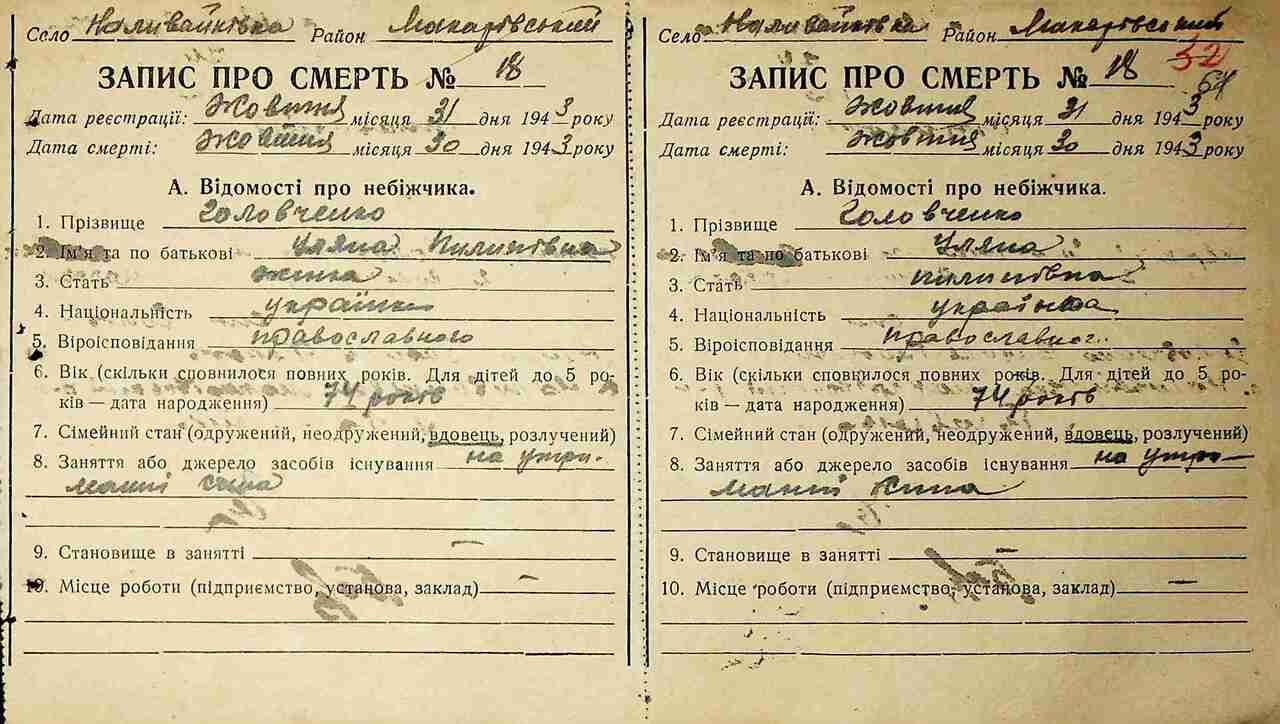 Село Наливайківка Район Макарівський
ЗАПИС ПРО СМЕРТЬ № 18
Дата реєстрації: Жовтня місяця 31 дня 1943 року
Дата смерті: Жовтня місяця 30 дня 1943 року
А. Відомості про небіжчика.
1. Прізвище Головченко
2. Ім'я та по батькові Уляна Пилипівна
3. Стать жінка
4. Національність українка
5. Віроісповідання православного
6. Вік (скільки сповнилося повних років. Для дітей до 5 ро-
ків — дата народження) 74 років
7. Сімейний стан (одружений, неодружений, вдовець, розлучений)
8. Заняття або джерело засобів існування на утри-
манні сина
9. Становище в занятті —
10. Місце роботи (підприємство, установа, заклад) —
Село Наливайківка Район Макарівський
52
ЗАПИС ПРО СМЕРТЬ № 18
64
Дата реєстрації: Жовтня місяця 31 дня 1943 року
Дата смерті: Жовтня місяця 30 дня 1943 року
А. Відомості про небіжчика.
1. Прізвище Головченко
2. Ім'я та по батькові Уляна
3. Стать пилипівна
4. Національність українка
5. Віроісповідання православног.
6. Вік (скільки сповнилося повних років. Для дітей до 5 ро-
ків — дата народження) 74 років
7. Сімейний стан (одружений, неодружений, вдовець, розлучений)
8. Заняття або джерело засобів існування на утри-
манні сина
9. Становище в занятті —
10. Місце роботи (підприємство, установа, заклад) —